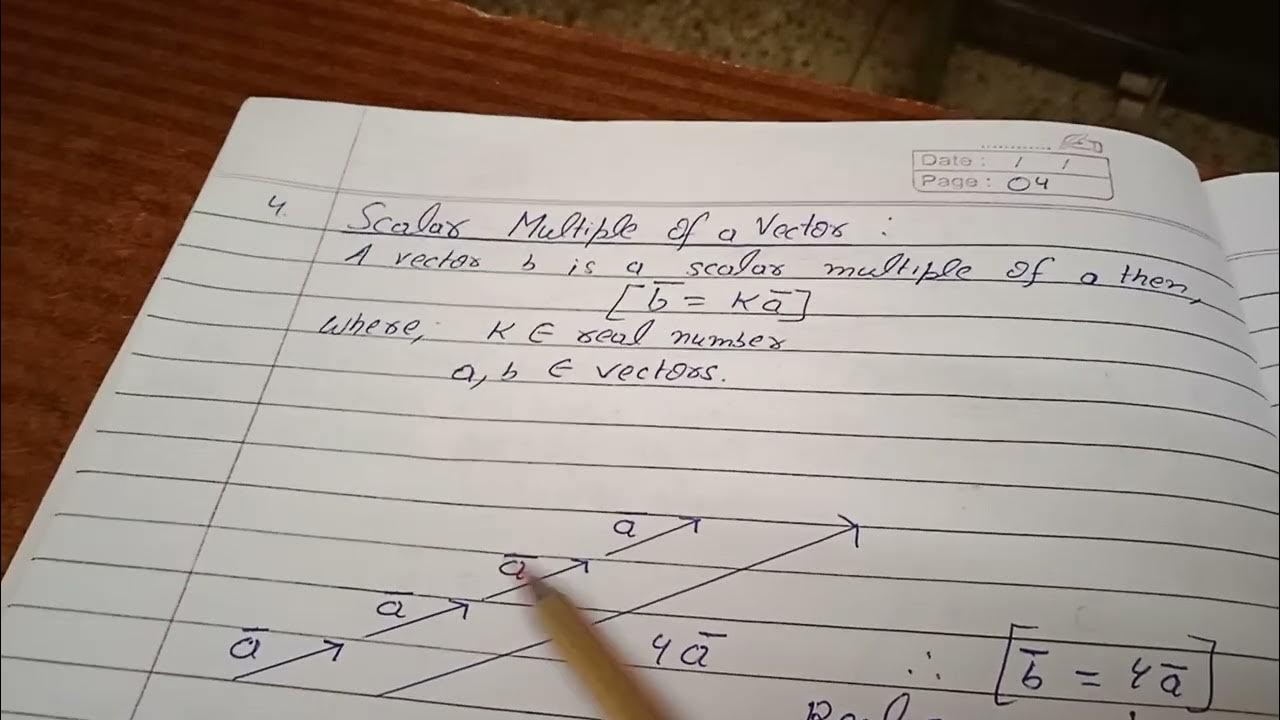 Date : / /
Page : 04
4. Scalar Multiple of a Vector :
A vector b is a scalar multiple of a then,
[b̅ = Ka̅]
where, K ∈ real number
a, b ∈ vectors.
a̅
a̅
a̅
a̅
4a̅
∴ [b̅ = 4a̅]